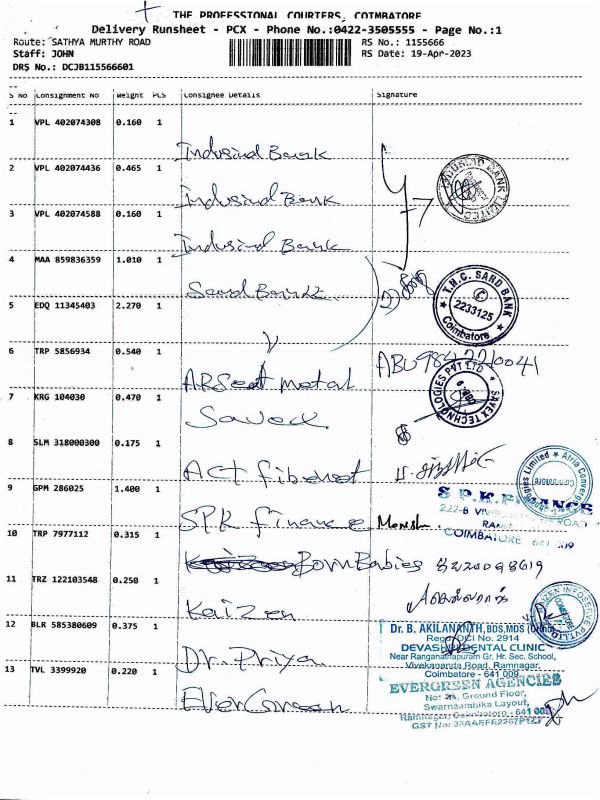 THE PROFESSTONAL COURTERS, COIMBATORE
Delivery Runsheet - PCX - Phone No.:0422-3505555 - Page No.:1
Route: SATHYA MURTHY ROAD RS No.: 1155666
Staff: JOHN RS Date: 19-Apr-2023
DRS No.: DCJB115566601
S No Consignment No Weight PCS Consignee Details Signature
1 VPL 402074308 0.160 1
Indusind Bank
2 VPL 402074436 0.465 1
Indusind Bank
INDUSIND BANK LIMITED
3 VPL 402074588 0.160 1
Indusind Bank
4 MAA 859836359 1.010 1
Sard Bank
T.N.C. SARD BANK
2233125
Coimbatore
5 EDQ 11345403 2.270 1
6 TRP 5856934 0.540 1
ARSeat metal
ABU 9842220041
7 KRG 104030 0.470 1
Savex
SAVEX TECHNOLOGIES PVT LTD
8 SLM 318000300 0.175 1
ACT fibernet
9 GPM 286025 1.400 1
SPK finance
S P.K.FINANCE
COIMBATORE 641 009
10 TRP 7977112 0.315 1
BornBabies
11 TRZ 122103548 0.250 1
Kaizen
12 BLR 585380609 0.375 1
Dr. Priya
Dr. B. AKILANANTH, BDS, MDS
DCI No. 2914
DEVASH DENTAL CLINIC
Near Ranganathapuram Gr. Hr. Sec. School,
Vivekananda Road, Ramnagar,
Coimbatore - 641 009
13 TVL 3399920 0.220 1
EverGreen
EVERGREEN AGENCIES
Ground Floor,
Swarnaambika Layout,
Ramnagar, Coimbatore - 641 009